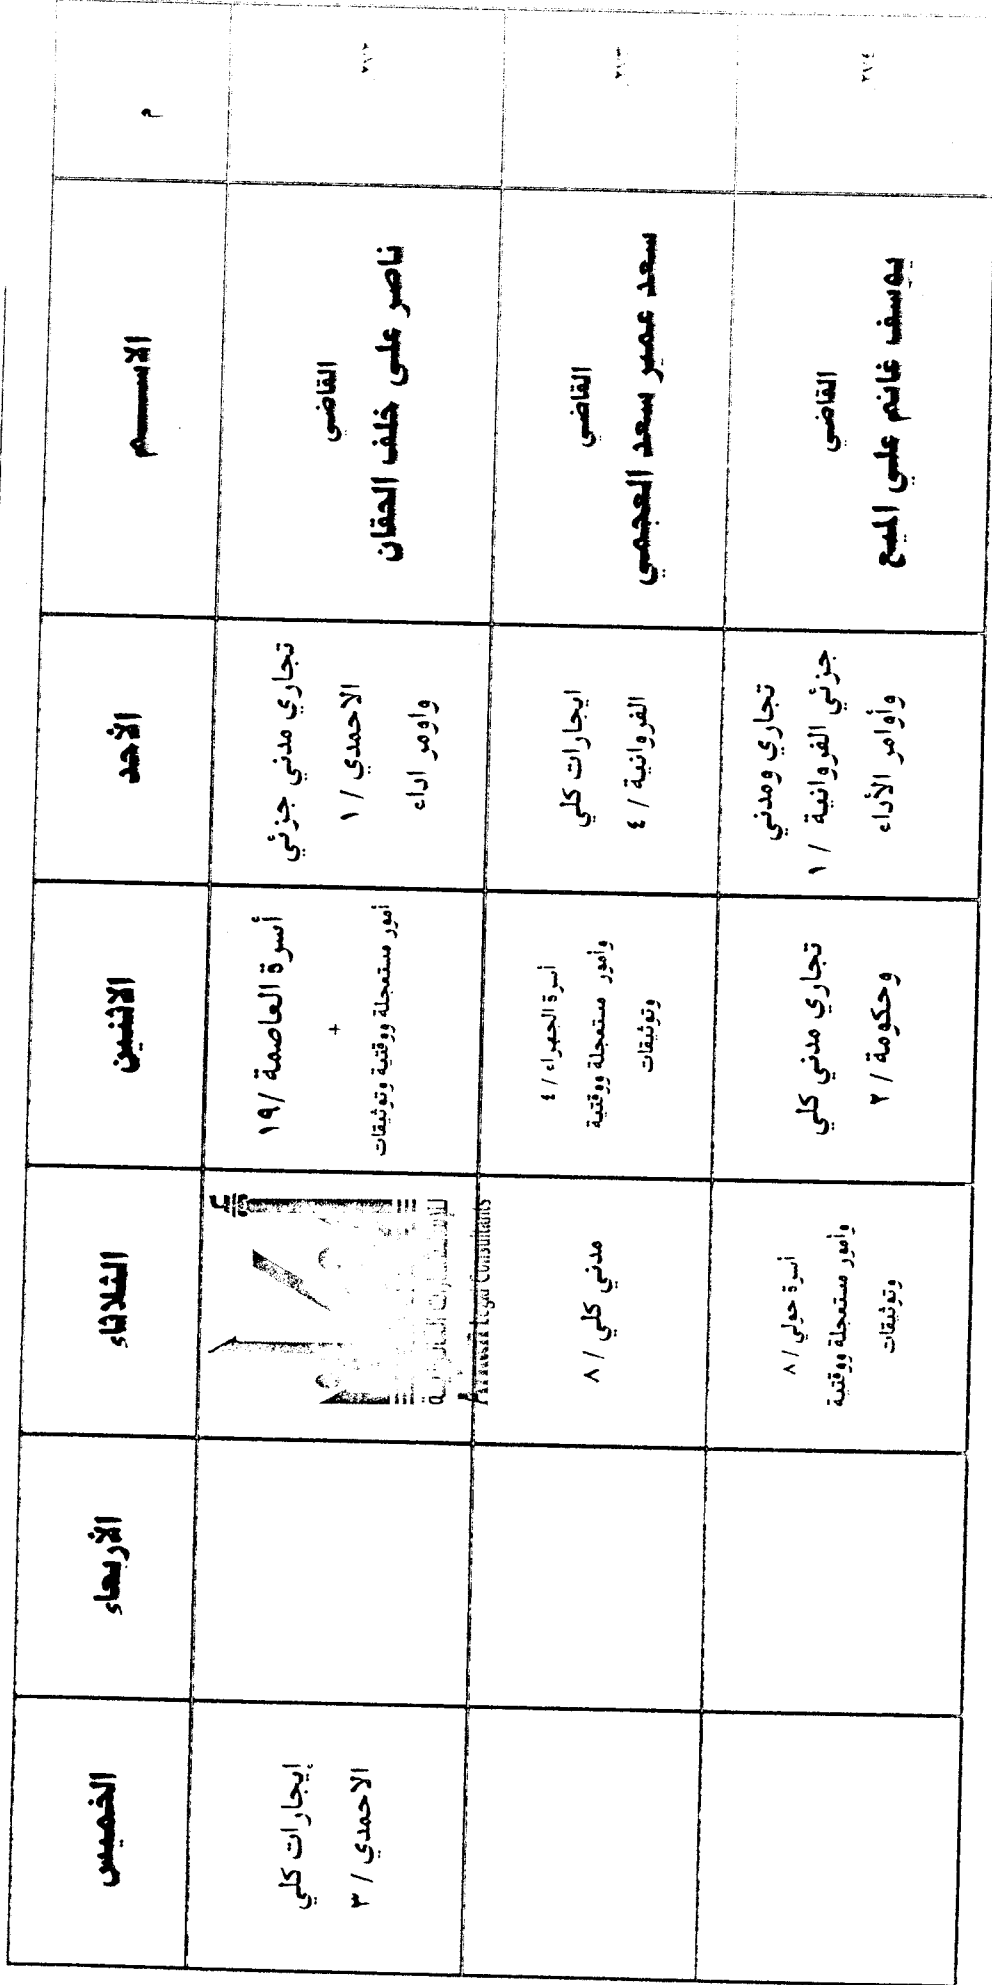 م
الاســـم
الأحد
الاثنين
الثلاثاء
الأربعاء
الخميس
القاضي
ناصر علي خلف الحقان
تجاري مدني جزئي
الاحمدي / ١
واومر اداء
أسرة العاصمة /١٩
+
أمور مستعجلة ووقتية وتوثيقات
Legal Consultants
إيجارات كلي
الاحمدي / ٣
القاضي
سعد عمير سعد العجمي
ايجارات كلي
الفروانية / ٤
أسرة الجهراء / ٤
وأمور مستعجلة ووقتية
وتوثيقات
مدني كلي / ٨
٢٨٤
القاضي
يوسف غانم علي الميع
تجاري ومدني
جزئي الفروانية / ١
وأوامر الأداء
تجاري مدني كلي
وحكومة / ٢
أسرة حولي / ٨
وأمور مستعجلة ووقتية
وتوثيقات